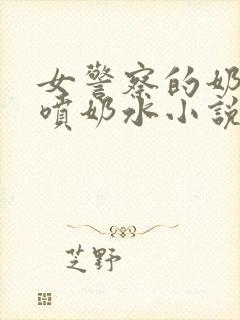 女警察的奶
噴奶水小說
芝野